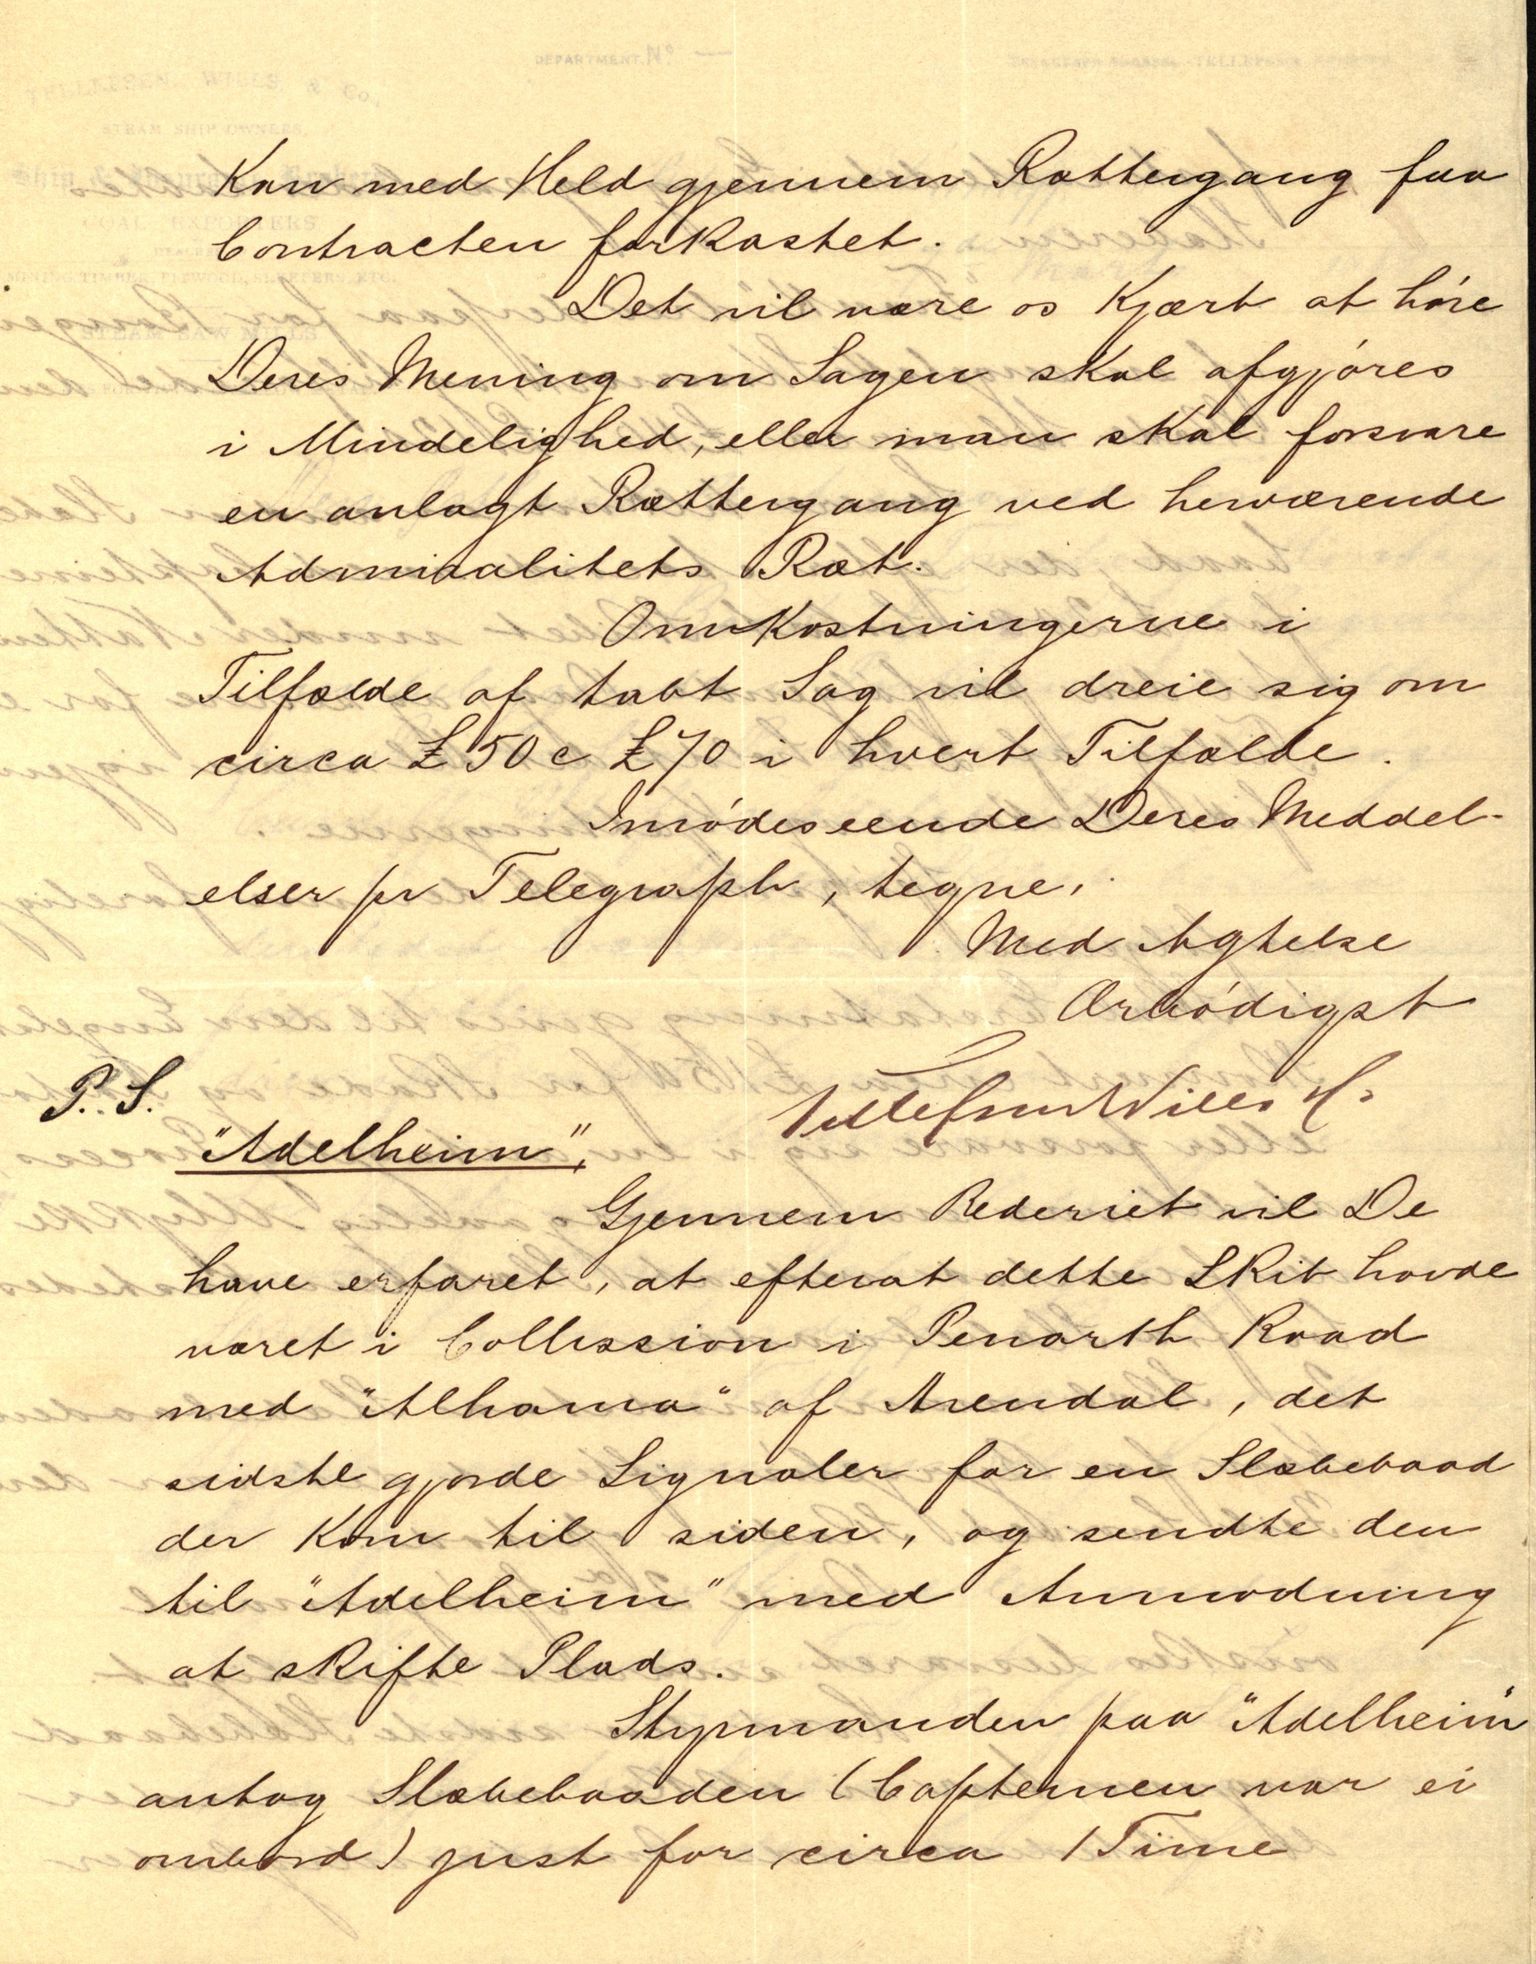 Kan med Held gjennem Rættergang faa
Contracten forkastet.
Det vil være os Kjært at høre
Deres Mening om Sagen skal afgjøres
i Mindelighed, eller man skal forsvare
en anlagt Rættergang ved herværende
Admiralitets Ræt.
Omkostningerne i
Tilfælde af tabt Sag vil dreie sig om
circa £50 c £70 i hvert Tilfælde.
Imødeseende Deres Meddel-
elser pr Telegraph, tegne,
Med Agtelse
Ærbødigst
Tellefsen Wills & Co
P. S.
"Adelheim",
Gjennem Rederiet vil De
have erfaret, at efterat dette Skib havde
været i Collission i Penarth Road
med "Alhama" af Arendal, det
sidste gjorde Signaler for en Slæbebaad
der Kom til siden, og sendte den
til "Adelheim" med Anmodning
at skifte Plads.
Styrmanden paa "Adelheim"
antog Slæbebaaden (Capteinen var ei
ombord) just for circa 1 Time